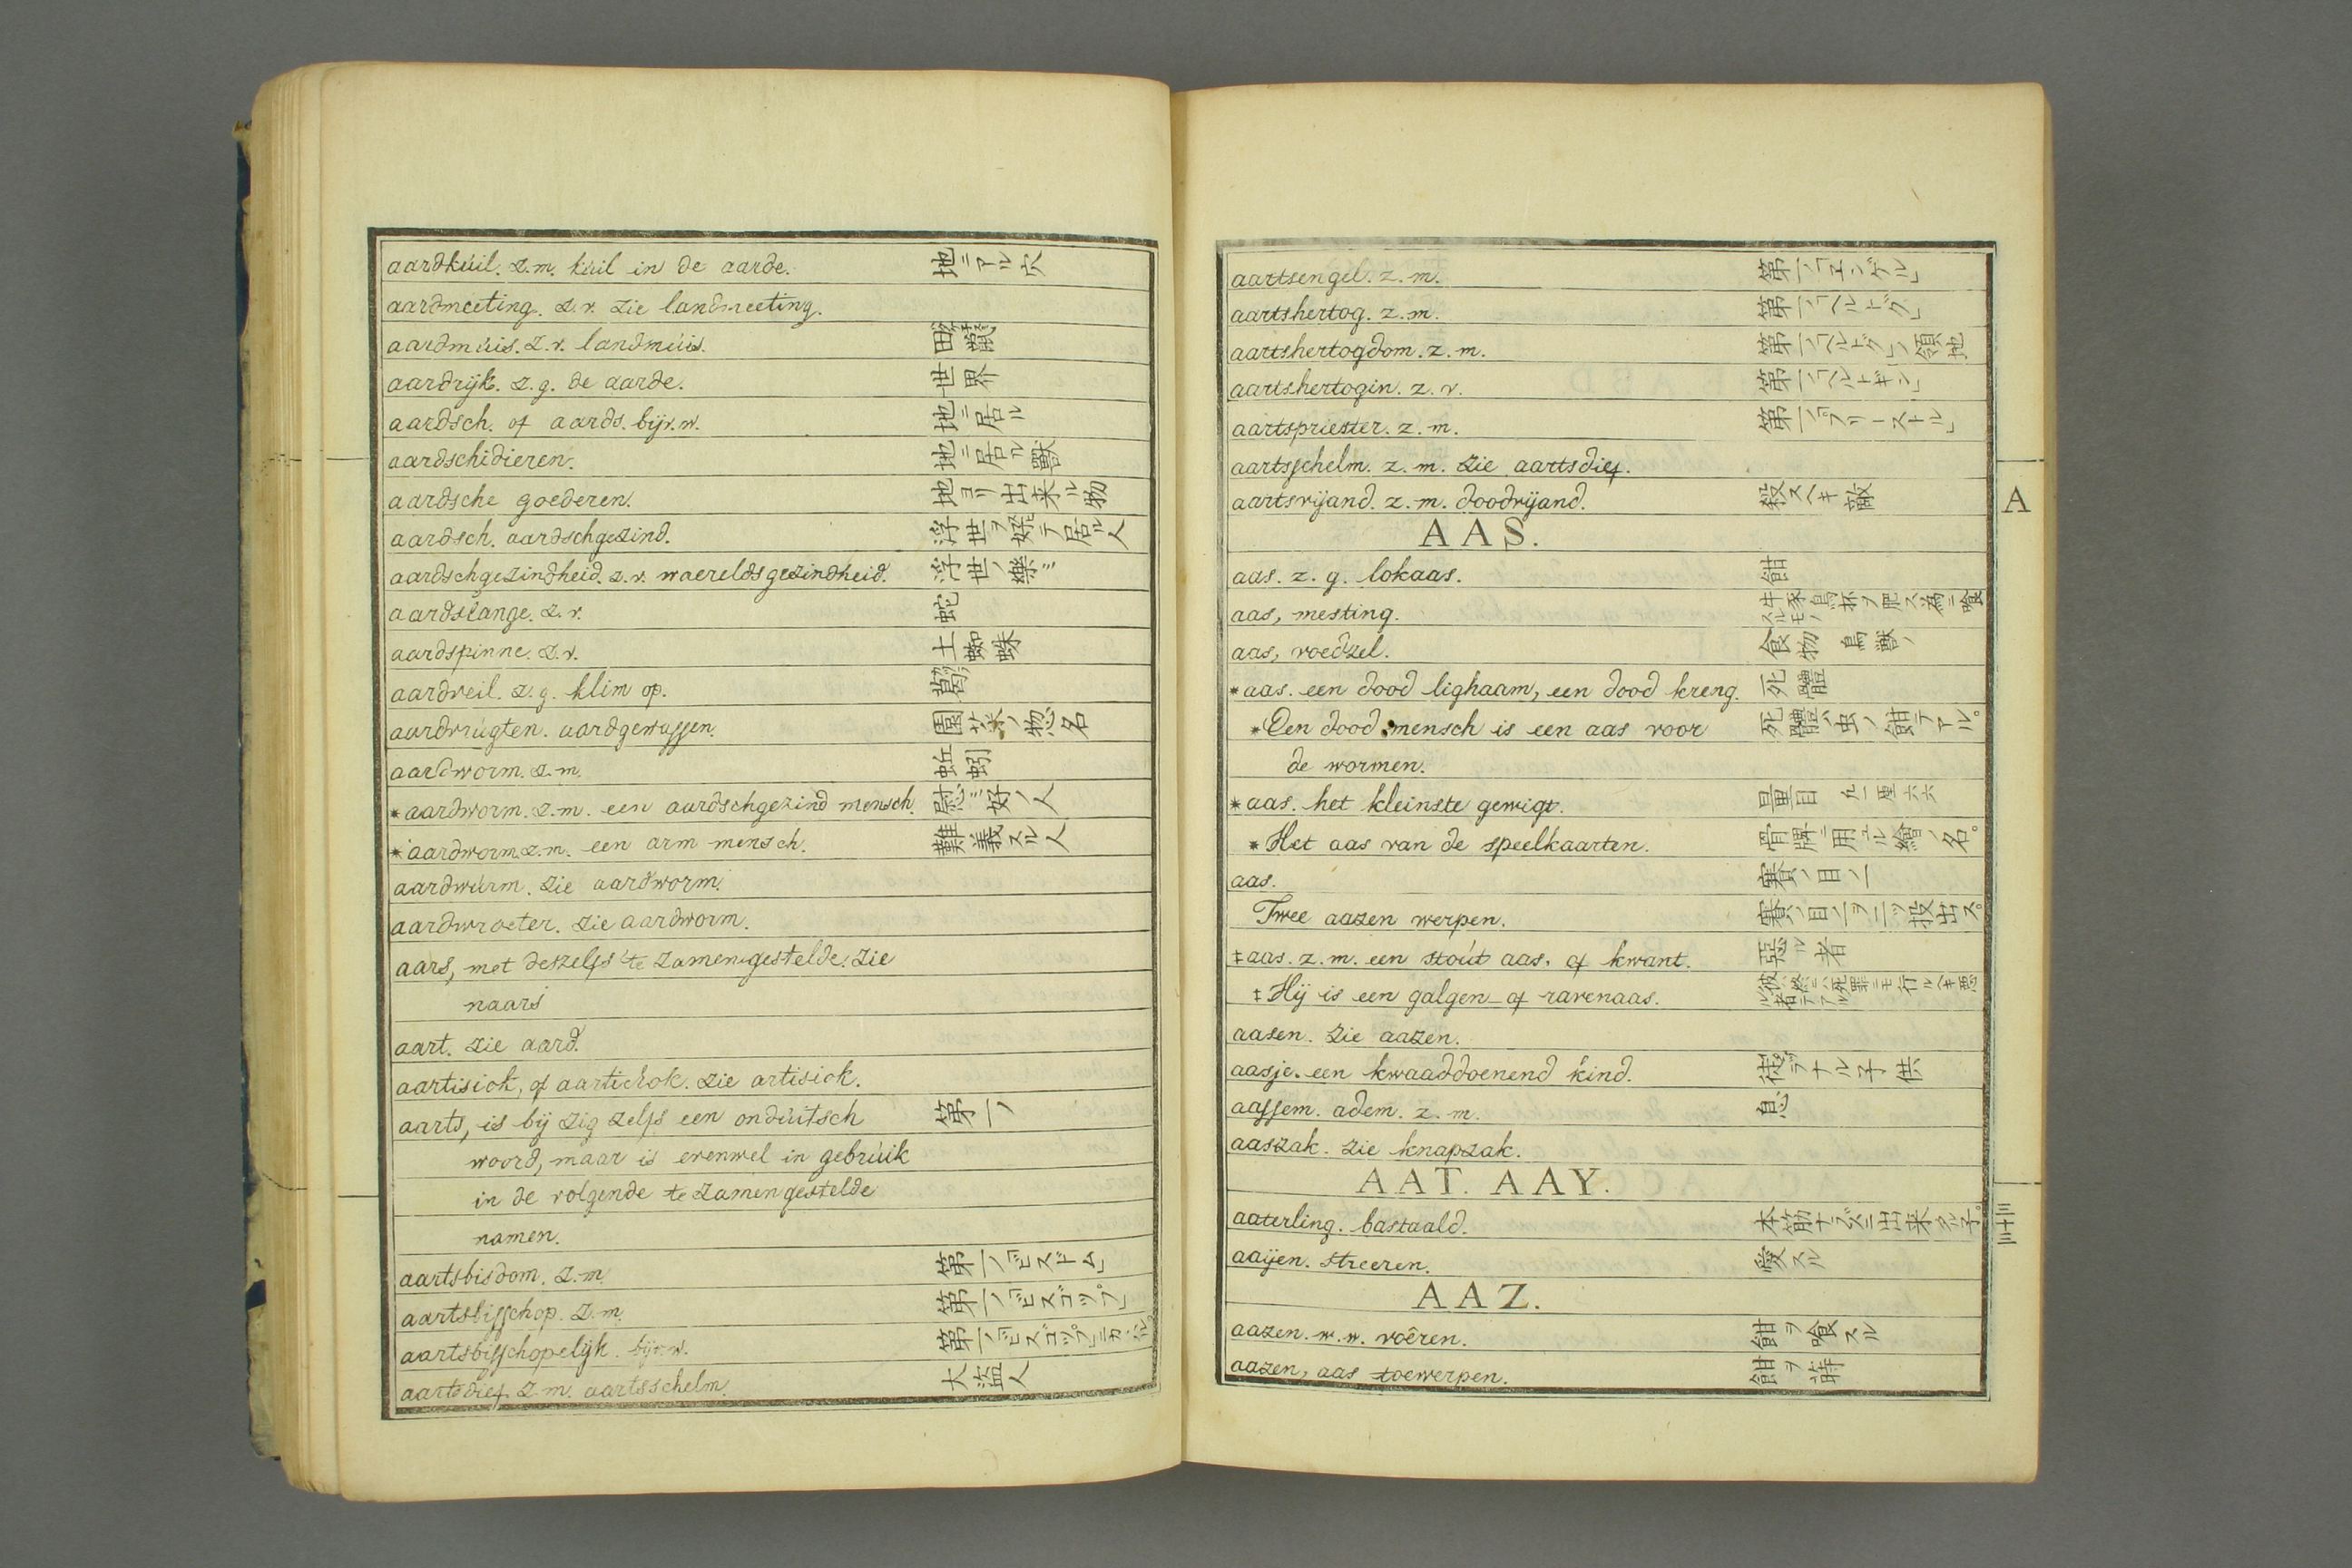 aardkúil. z.m. kúil in de aarde. 地ニアル穴
aardmeeting. z.v. zie landmeeting.
aardmúis. z.v. landmúis. 田鼴
aardrijk. z.g. de aarde. 世界
aardsch. of aards. bijv.w. 地ニ居ル
aardschidieren. 地ニ居ル獣
aardsche goederen. 地ヨリ出来ル物
aardsch. aardschgezind. 浮世ヲ好テ居ル人
aardschgezindheid. z.v. waereldsgezindheid. 浮世ノ樂ミ
aardslange. z.v. 蛇
aardspinne. z.v. 土蜘蛛
aardveil. z.g. klim op. 蔦
aardvrúgten. aardgewassen. 園菜ノ惣名
aardworm. z.m. 蚯蚓
*aardworm. z.m. een aardschgezind mensch. 慰ミ好ノ人
*aardworm. z.m. een arm mensch. 難義スル人
aardwúrm. zie aardworm.
aardwroeter. zie aardworm.
aars, met deszelfs te zamengestelde. zie
naars
aart. zie aard.
aartisiok, of aartichok. zie artisiok.
aarts, is bij zig zelfs een ondúitsch 第一ノ
woord, maar is evenwel in gebrúik
in de volgende te zamengestelde
namen.
aartsbisdom. z.m. 第一ノ「ビスドム」
aartsbisschop. z.m. 第一ノ「ビスゴップ」
aartsbisschopelijk. bijv.w. 第一ノ「ビスゴップ」ニカヽル。
aartsdief. z.m. aartsschelm. 大盗人
aartsengel. z.m. 第一ノ「エンゲル」
aartshertog. z.m. 第一ノ「ヘルトグ」
aartshertogdom. z.m. 第一ノ「ヘルトグ」ノ領地
aartshertogin. z.v. 第一ノ「ヘルトギン」
aartspriester. z.m. 第一ノ「プリーストル」
aartsschelm. z.m. zie aartsdief.
aartsvijand. z.m. doodvijand. 殺スヘキ敵
A
AAS.
aas. z.g. lokaas. 餌
aas, mesting. 牛豕鳥杯ヲ肥ス為ニ喰スルモノ
aas, voedzel. 食物 鳥獣ノ
*aas. een dood lighaam, een dood kreng. 死體
*Een dood mensch is een aas voor 死體ハ虫ノ餌テアル。
de wormen.
*aas. het kleinste gewigt. 量目 九一厘六六
*Het aas van de speelkaarten. 骨牌ニ用ユル繪ノ名。
aas. 賽ノ目ノ一
Twee aazen werpen. 賽ノ目ノ一ヲ二ツ投出ス。
‡aas. z.m. een stoút aas. of kwant. 惡ル者
‡Hij is een galgen-of ravenaas. 彼ハ終ニハ死罪ニモ行ルヘキ悪ル者テアル
aasen. zie aazen.
aasje. een kwaaddoenend kind. 徒ラナル子供
aassem. adem. z.m. 息
aaszak. zie knapzak.
AAT. AAY.
aaterling. bastaald. 本筋ナラズニ出来タル子。
三十三
aaijen. streeren. 愛スル
AAZ.
aazen. w.w. voêren. 餌ヲ喰スル
aazen, aas toewerpen. 餌ヲ蒔